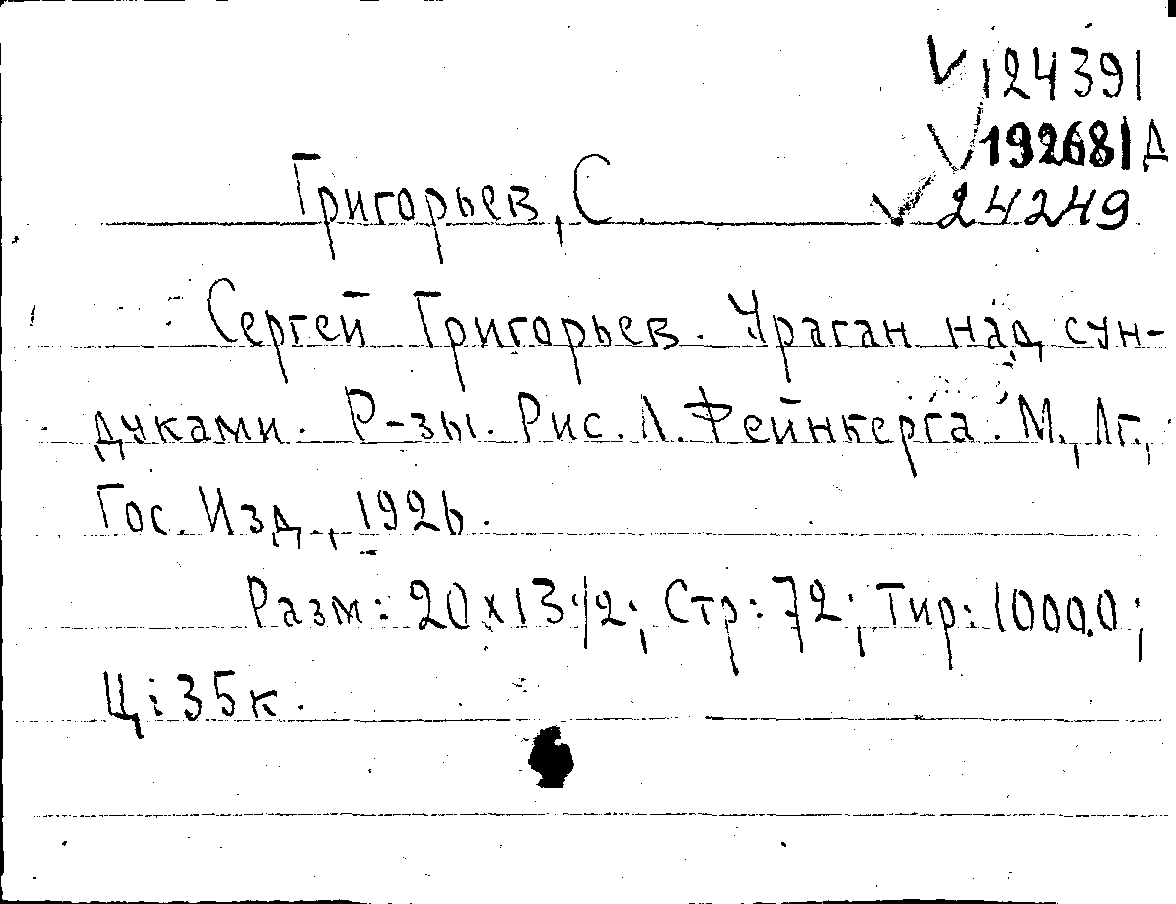 124391
192681Д
24249
Григорьев, С.
Сергей Григорьев. Ураган над сун-
дуками. Р-зы. Рис. Л. Фейнберга. М., Лг.,
Гос. Изд., 1926.
Разм: 20х13 1/2; Стр: 72; Тир: 10000;
Ц: 35к.